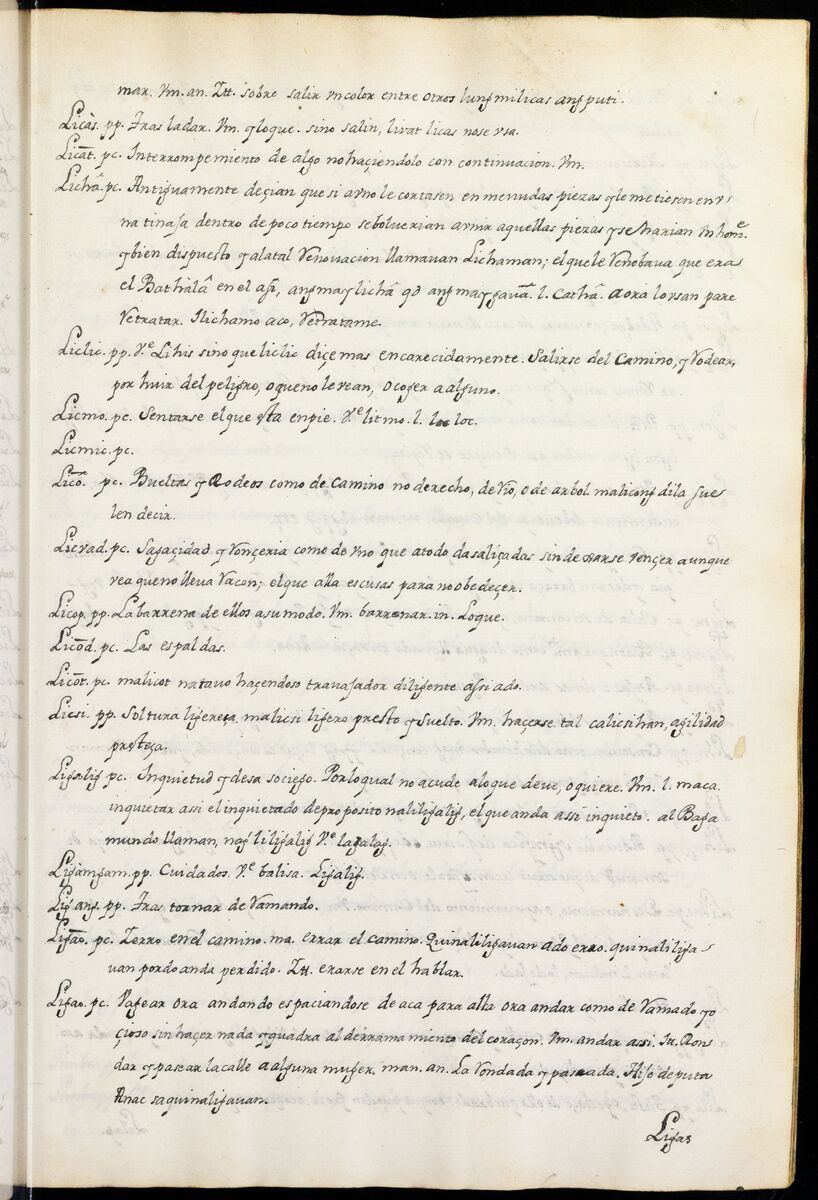 mar. Vm. an. Itt. sobre salir vn color entre otros lung milicas ang puti.
Licàs. pp. Tras ladar. Vm. y loque. sino salin, livat licas nose vsa.
Licāt. pc. Interrompemiento de algo no haçiendolo con continuacion. Vm.
Lichâ. pc. Antiguamente deçian que si a vno le cortasen en menudas piezas y le metiesen en v-
na tinaja dentro de poco tiempo se boluerian a vnir aquellas piezas y se harian vn home.
y bien dispuesto y a la tal Renovacion llamavan Lichaman; el que le Renobava que era
el Bathàlâ en el asi, ang may lichâ qd ang may gauā. l. Cathâ. aora lo vsan para
Retratar. Ilichamo aco, Retratame.
Liclic. pp. Ve Lihis sino que liclic diçe mas encarecidamente. Salirse del Camino, y Rodear,
por huir del peligro, o que no le vean, o coger a alguno.
Licmo. pc. Sentarse el que esta en pie. Ve litmo. l. loc loc.
Licmic. pc.
Licō. pc. Bueltas y Rodeos como de camino no derecho, de Rio, o de arbol. malicong dila sue
len decir.
Licvad. pc. Sagaçidad y Ronçeria como de vno que a todo da saliçadas sin dexarse vençer aunque
vea que no lleva Raçon; el que alla escusas para no obedeçer.
Licop. pp. La barrena de ellos a su modo. Vm. barrenar. in. Loque.
Licōd. pc. Las espaldas.
Licōt. pc. malicot na tavo haçendoso travajador diligente asi ado.
Licsi. pp. Soltura ligereça, malicsi ligero presto y Suelto. Vm. haçerse tal calicsihan, agilidad
presteça.
Ligalig pc. Inquietud y desasociego. Por lo qual no acude a lo que deve, o quiere. Vm. l. maca.
inquietar asi el inquietado de proposito naliligalig, el que anda assi inquieto. al Baga
mundo llaman, nag liligalig Ve lagalag.
Ligàmgam. pp. Cuidados. Ve balisa. Ligalig.
Lig ang. pp. Tras tornar derramando.
Ligāo. pc. Zerro en el camino. ma. errar el camino. Quinaliligauan ado erro. quinaliliga-
uan por do anda perdido. Itt. erarse en el hablar.
Ligao. pc. Vagear ora andando espaciandose de aca para alla ora andar como derramado y o
çioso sin haçer nada y quadra al derramamiento del coraçon. Vm. andar assi. It. Ron
dar y pasear la calle a alguna muger. man. an. La Rondada y paseada. Hijo de puta
Anac sa quinaligauan.
Ligas